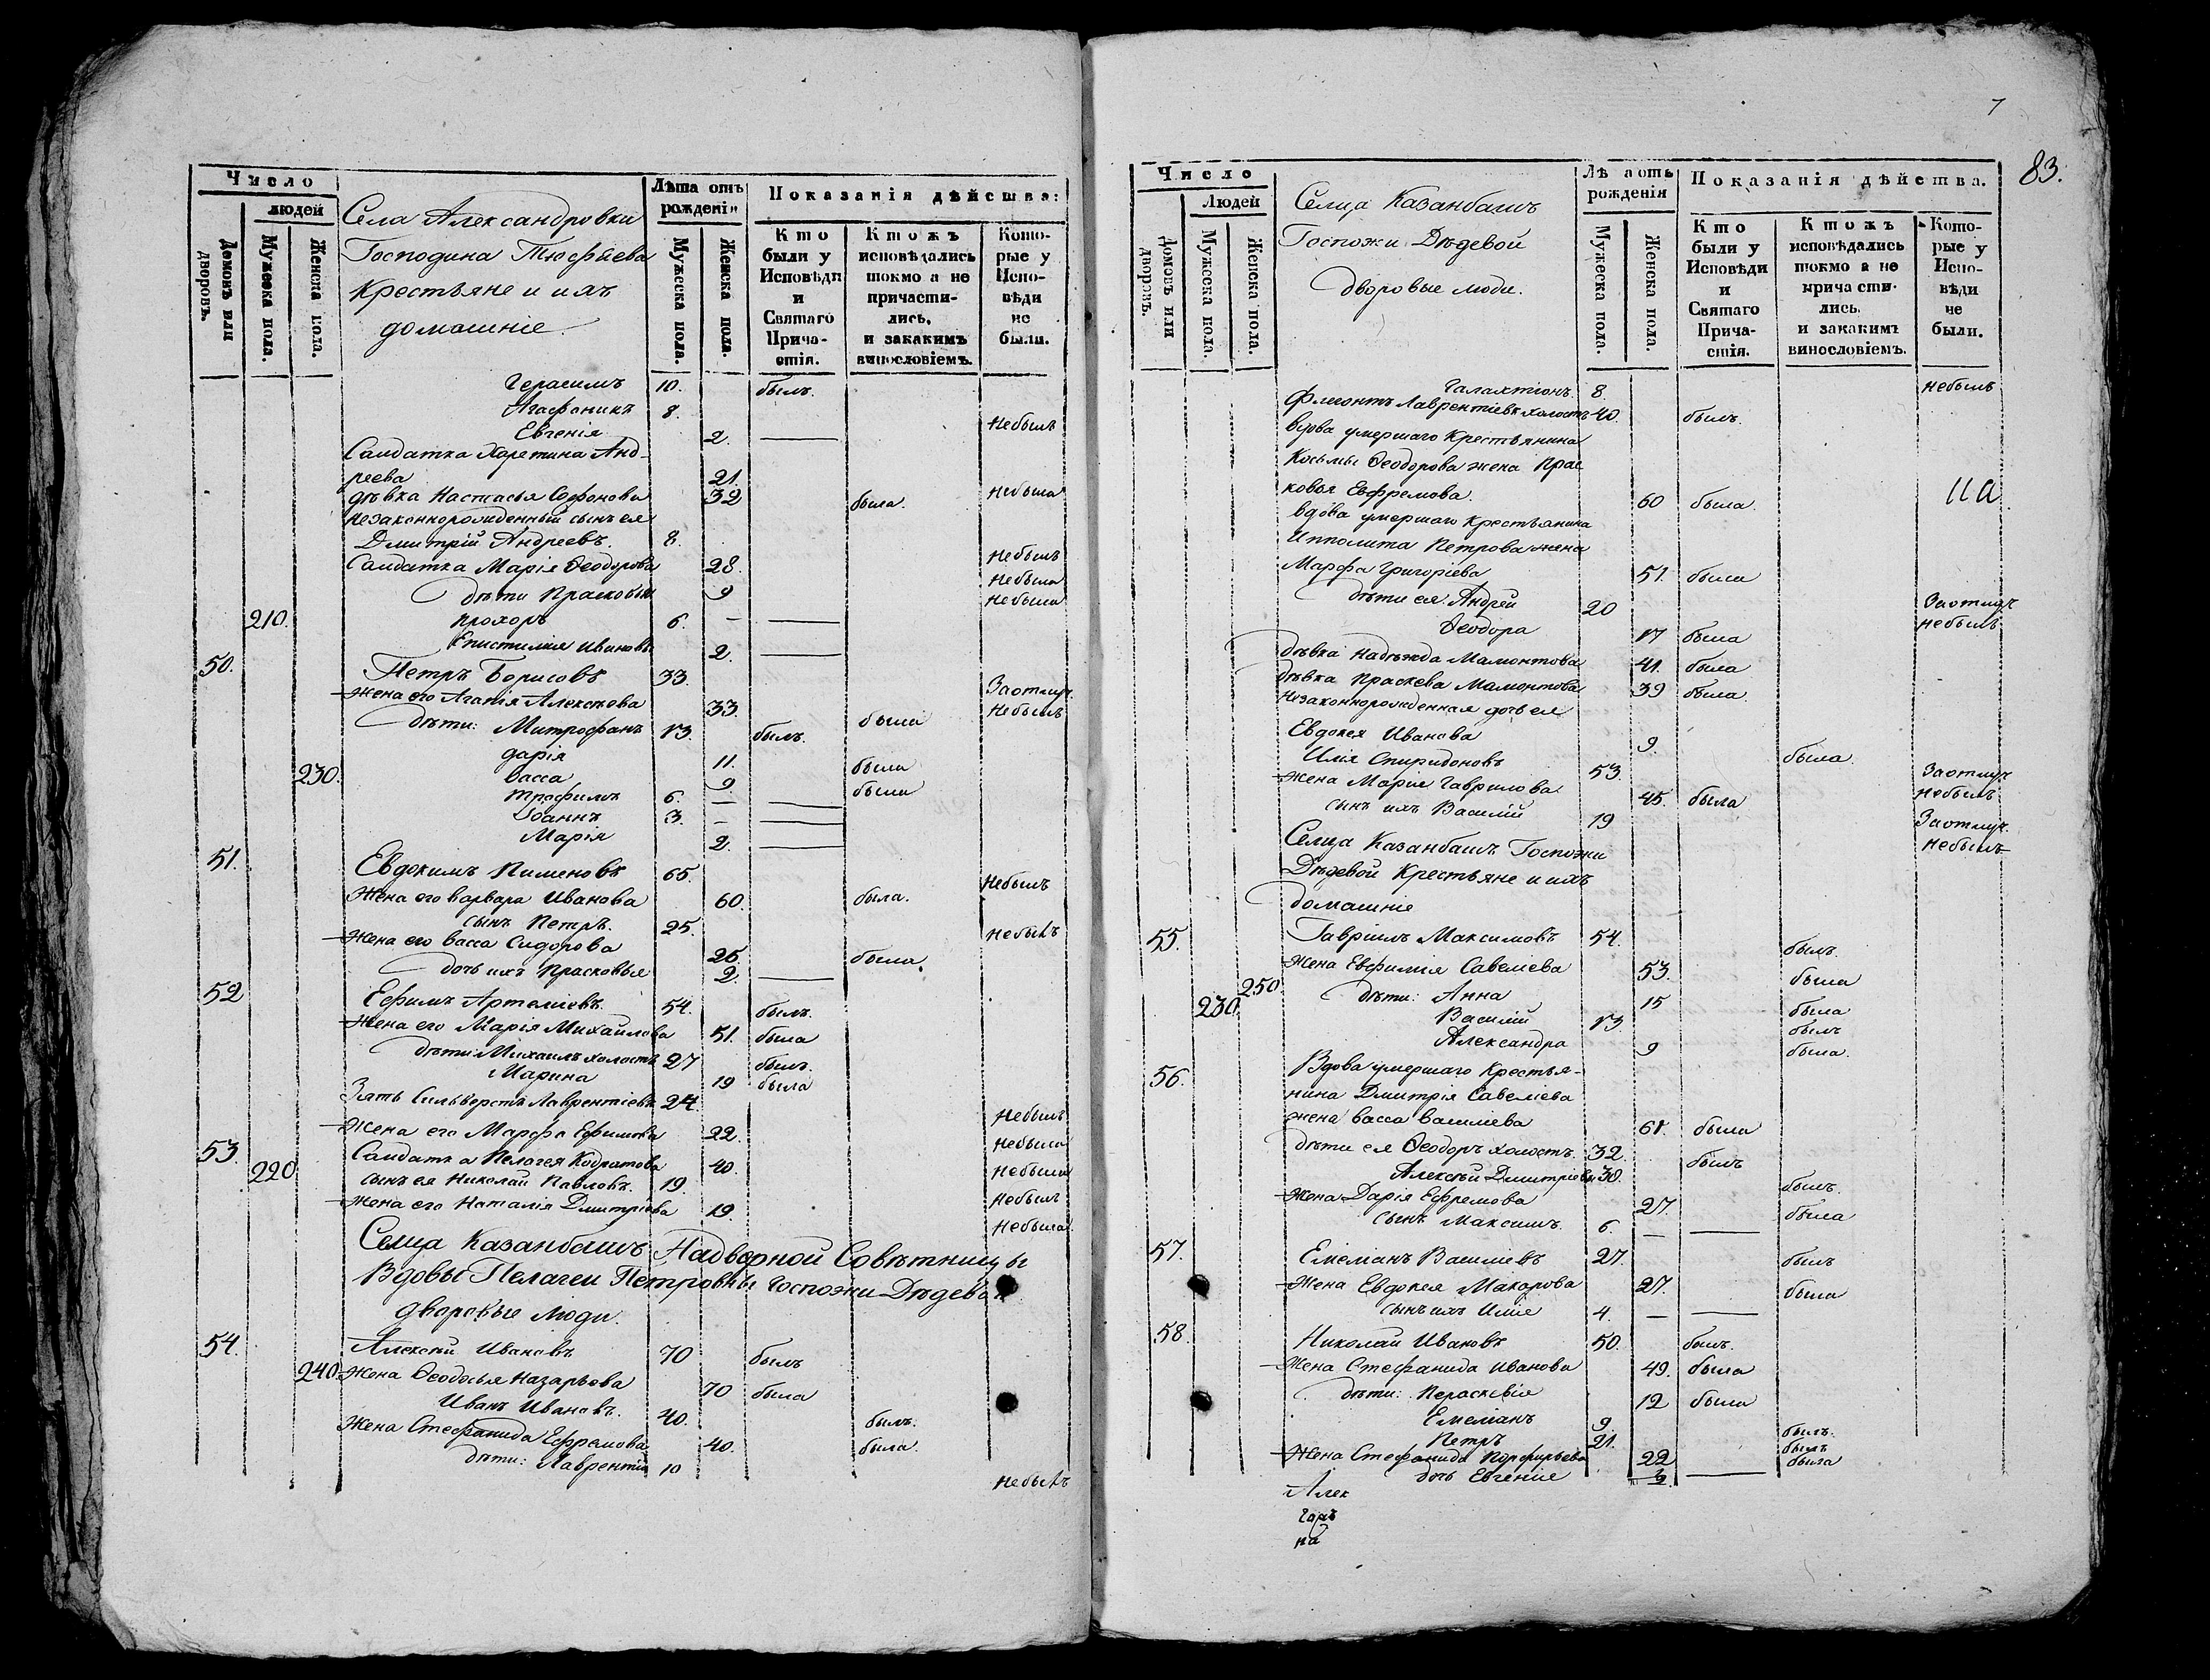 Число
людей
Домовъ или дворовъ.
Мужеска пола.
Женска пола.
Села Александровки
Господина Тюфѣева
Крестьяне и ихъ
домашніе.
Лѣта отъ рожденія
Мужеска пола.
Женска пола.
Показанія дѣйства:
Кто были у Исповѣди и Святаго Прича-стія.
Ктожъ исповѣдались токмо а не причасти-лись, и закакимъ винословіемъ.
Кото-рые у Испо-вѣди не были.
Герасимъ 10. былъ.
Агафоникъ 8. небылъ
Евгенія 2. —
Салдатка Харетина Анд-
реева 21. небыла
дѣвка Настасья Софонова 32 была.
незаконнорожденный сынъ ея
Дмитрій Андреевъ 8. небылъ
Салдатка Марія Ѳеодорова 28. небыла
дѣти Прасковья 9 небыла
210. Прохоръ 6. — —
Епистимія Иванова 2. —
50. Петръ Борисовъ 33. Заотлуч. Небылъ
жена его Агапія Алексѣева 33. была
дѣти: Митрофанъ 13. былъ.
дарія 11. была
230. васса 9 была
Трофимъ 6. — —
Іоаннъ 3. — —
Марія 2. —
51. Евдокимъ Пименовъ 65. Небылъ
Жена его варвара Иванова 60. была.
сынъ Петръ. 25. небылъ
жена его васса Сидорова 26 была
дочь ихъ Прасковья 2. —
52 Ефимъ Артеміевъ. 54. былъ.
жена его Марія Михайлова 51. была
дѣти: Михаилъ холостъ 27 былъ.
Марина 19 была
Зять Сильверстъ Лаврентіевъ 24. Небылъ
жена его Марфа Ефимова 22. небыла
53. Салдатка Пелагея Кодратова 40. небыла
220 сынъ ея Николай Павловъ. 19. небылъ
жена его Наталія Дмитріева 19. небыла.
Селца Казанбашъ Надворной Совѣтницы
Вдовы Пелагеи Петровны госпожи Дѣдевой
дворовые люди.
54. Алексѣй Ивановъ 70 былъ
240. жена Ѳеодосья Назарьева 70 была
Иванъ Ивановъ. 40. былъ.
жена Стефанида Ефремова 40. была.
дѣти: Лаврентій 10 небылъ
7
83.
Число
Людей
Домовъ или дворовъ.
Мужеска пола.
Женска пола.
Селца Казанбашъ
Госпожи Дѣдевой
дворовые люди.
Лѣ а отъ рожденія
Мужеска пола.
Женска пола.
Показанія дѣйства.
Кто были у Исповѣди и Святаго Прича-стія.
Ктожъ исповѣдались токмо а не причасти-лись, и закакимъ винословіемъ.
Кото-рые у Испо-вѣди не были.
Галахтіонъ. 8. небылъ
Флегонтъ Лаврентіевъ холостъ 40. былъ.
вдова умершаго Крестьянина
Косьмы Ѳеодорова жена Прас
ковья Евфремова. 60 была.
11а
вдова умершаго крестьянина
Ипполита Петрова жена
Марфа Григоріева 51. была
дѣти ея. Андрей 20 Заотлуч небылъ
Ѳеодора 17 была
дѣвка Надежда Мамонтова 41. была
дѣвка Праскева Мамонтова 39 была.
незаконнорожденная дочь ея
Евдокея Иванова 9. была
Илія Спиридоновъ 53. Заотлуч небылъ
жена Марія Гаврилова 45. была
сынъ ихъ Василій 19 Заотлуч. небылъ
Селца Казанбашъ Госпожи
Дѣдевой Крестьяне и ихъ
домашніе
55. Гавріилъ Максимовъ 54. былъ.
жена Евфимія Савеліева 53. была
250. дѣти: Анна 15 была
230. Василій 13. былъ
Александра 9 была.
56. Вдова умершаго Крестья-
нина Дмитрія Савеліева
жена васса василіева 61. была
дѣти ея Ѳеодоръ холостъ. 32. былъ
Алексѣй Дмитріевъ 30. былъ.
жена Дарія Ефремова 27. была
сынъ Максимъ. 6. — —
57. Емеліанъ Васильевъ 27. былъ
жена Евдокея Макарова 27. была
сынъ ихъ Илія 4. — —
58. Николай Ивановъ 50. былъ.
жена Стефанида Иванова 49. была
дѣти: Параскевія 12 была
Емеліанъ 9 былъ.
Петръ 21. былъ
жена Стефанида Порфирьева 22 была
дочь Евгенія —
Алек
горъ
на